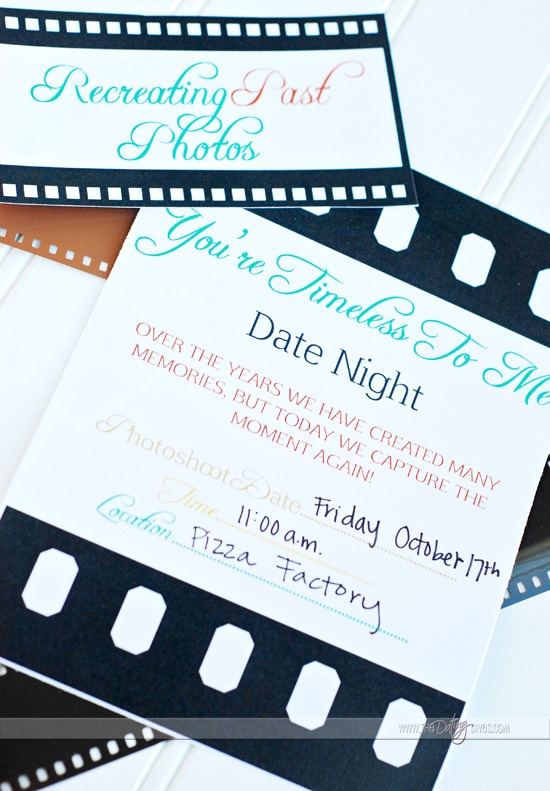 Recreating Past
Photos
You're Timeless To Me
Date Night
OVER THE YEARS WE HAVE CREATED MANY
MEMORIES, BUT TODAY WE CAPTURE THE
MOMENT AGAIN!
Photoshoot Date Friday October 17th
Time 11:00 a.m.
Location Pizza Factory
WWW.THE Dating DIVAS.COM